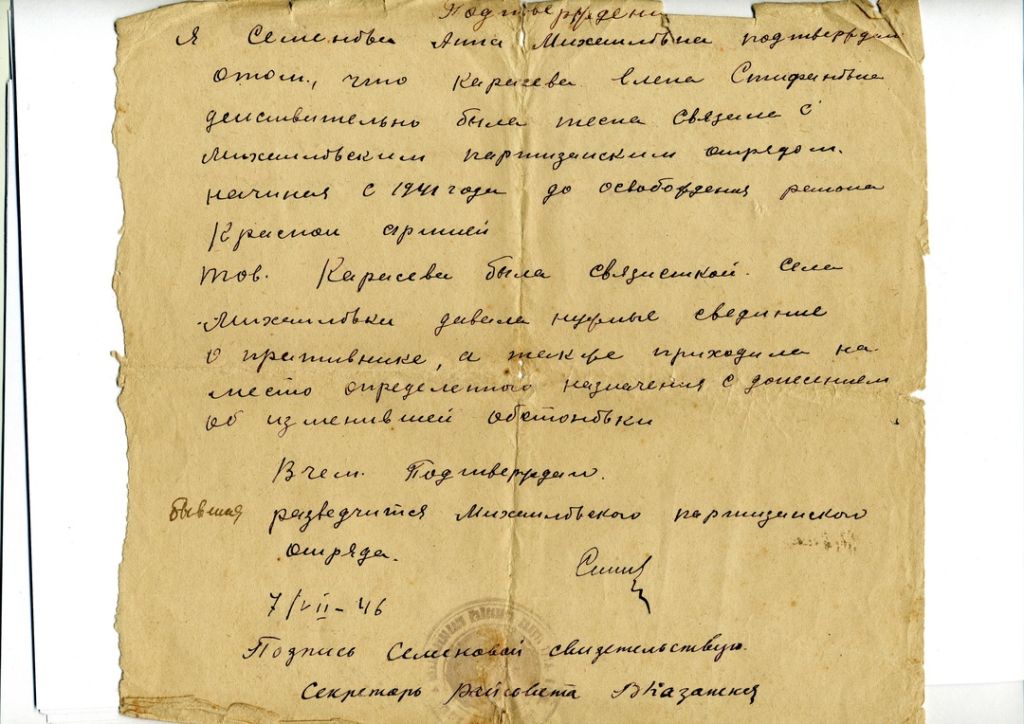 Подтверждени
Я Семеновы Анна Михаиловна подтверждаю
отом, что Карасева Елена Стифановна
действительно была тесна связана с
Михаиловским партизанским отрядом.
начиная с 1941 года до освобождения раиона
Краснои армией
Тов. Карасева была связисткой. села
Михаиловки давала нужные свединие
о пративнике, а также приходила на
место определенного назначения с донесением
об изменившей обстоновки
В чем. Подтверждаю.
бывшая разведчитса Михаиловского партизанского
отряда.
7/VII-46
Подпись Семеновой свидетельствую.
Секретарь Райсовета